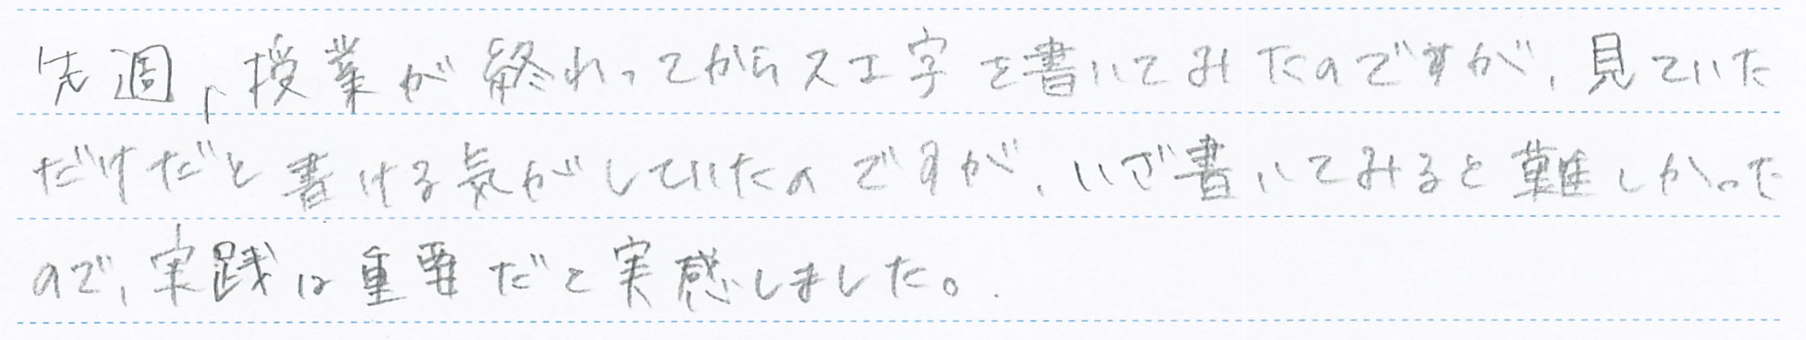 先週、授業が終わってからスエ字を書いてみたのですが、見ていた
だけだと書ける気がしていたのですが、いざ書いてみると難しかった
ので、実践は重要だと実感しました。